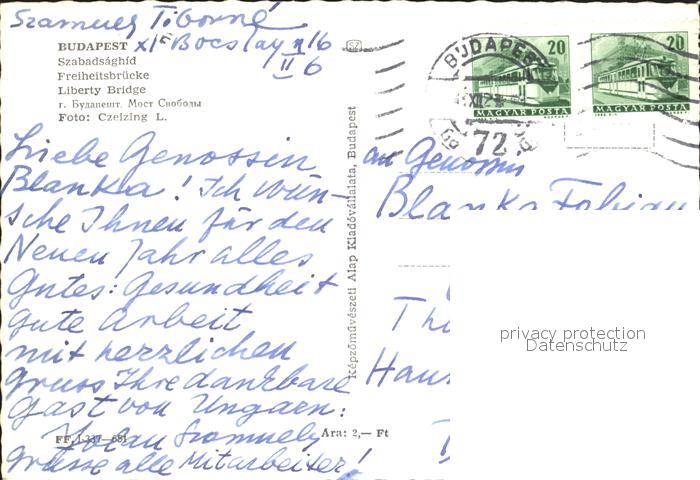 Szamuely Tiborné
XIe Bocskay u 16
II 6
BUDAPEST
Szabadsághíd
Freiheitsbrücke
Liberty Bridge
г. Будапешт. Мост Свободы
Foto: Czeizing L.
Liebe Genossin
Blanka! Ich wün-
sche Ihnen für den
Neuen Jahr alles
Gutes: Gesundheit
gute Arbeit
mit herzlichen
Gruss Ihre dankbare
Gast von Ungarn:
Szamuely
Grüsse alle Mitarbeiter!
FF.
Ára: 2,— Ft
Képzőművészeti Alap Kiadóvállalata, Budapest
BUDAPEST
72
20
MAGYAR POSTA
20
MAGYAR POSTA
an Genossin
Blanka Fabian
Th
Haus
privacy protection
Datenschutz